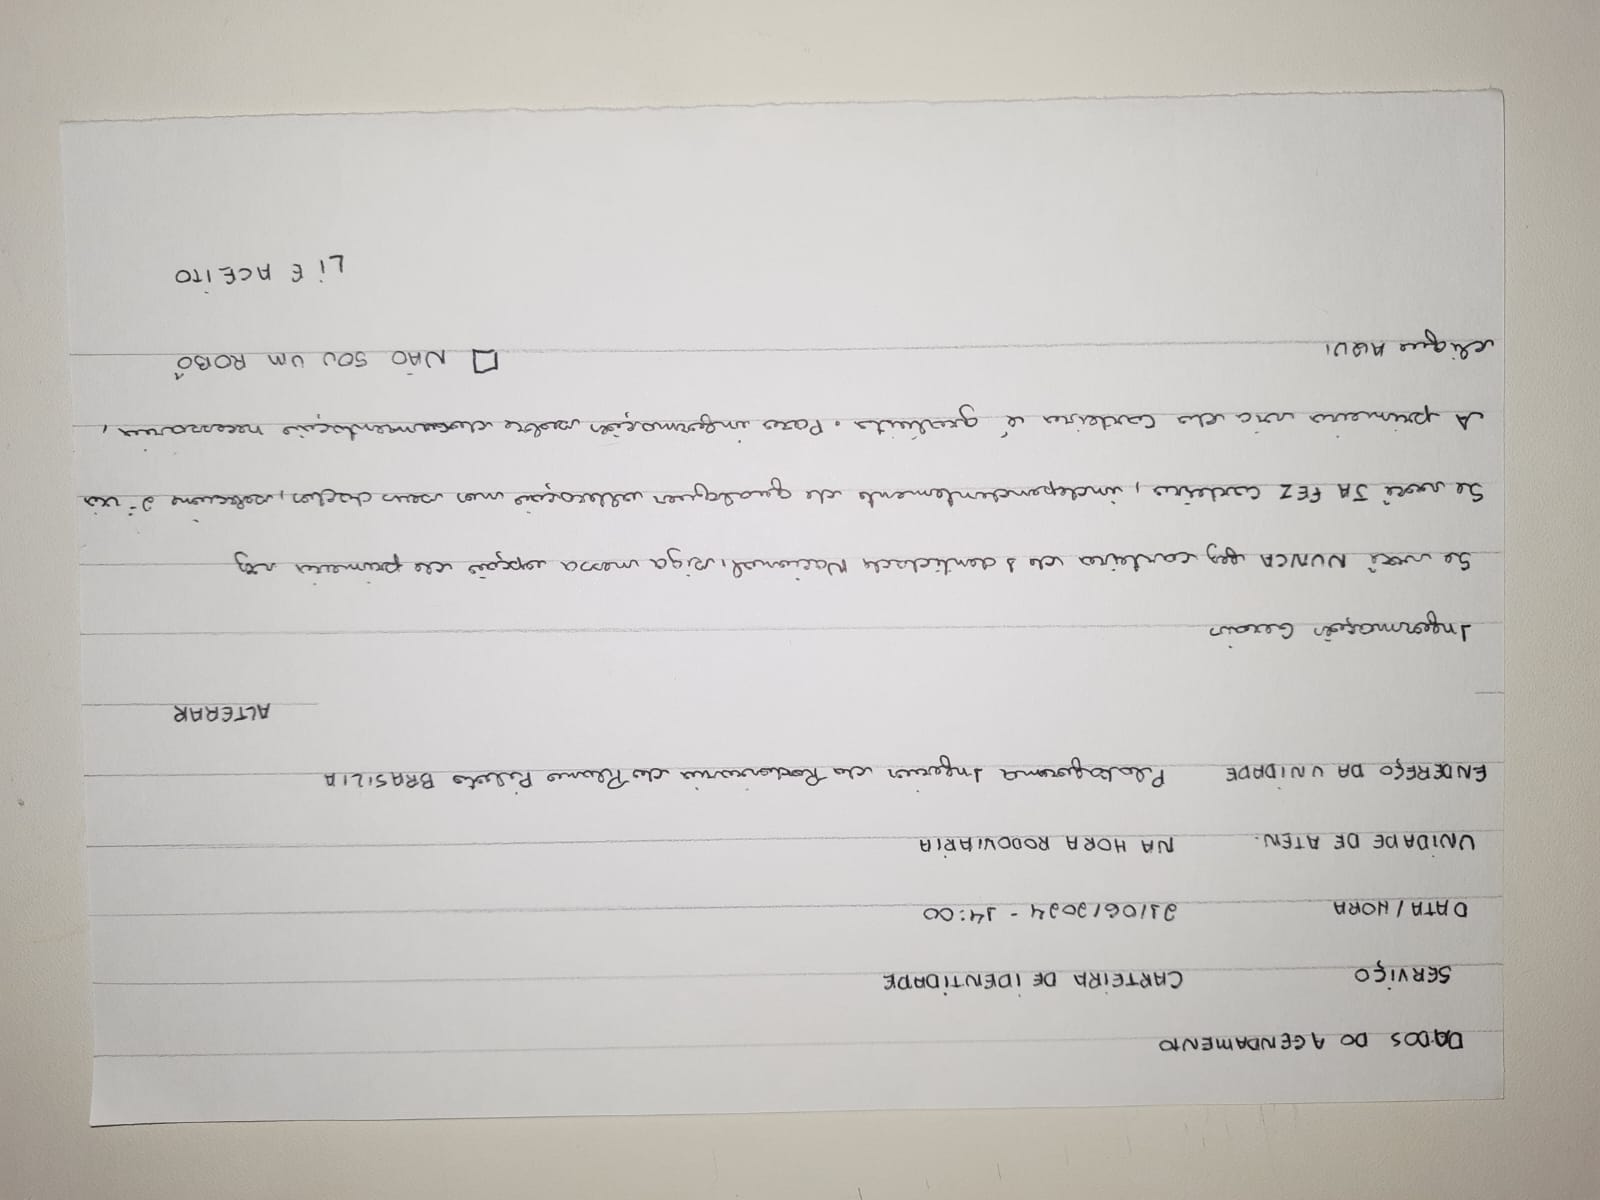 DADOS DO AGENDAMENTO
SERVIÇO CARTEIRA DE IDENTIDADE
DATA/HORA 21/06/2024 - 14:00
UNIDADE DE ATEN. NA HORA RODOVIARIA
ENDEREÇO DA UNIDADE Plataforma Inferior da Rodoviaria do Plano Piloto BRASILIA
ALTERAR
Informações Gerais
Se você NUNCA fez carteira de Identidade Nacional, siga nessa opção de primeira vez
Se você JA FEZ carteira, independentemente de qualquer alteração nos seus dados, selecione 2ª via
A primeira via da Carteira é gratuita. Para informações sobre documentação necessaria,
clique AQUI
☐ NÃO SOU UM ROBÔ
LI E ACEITO